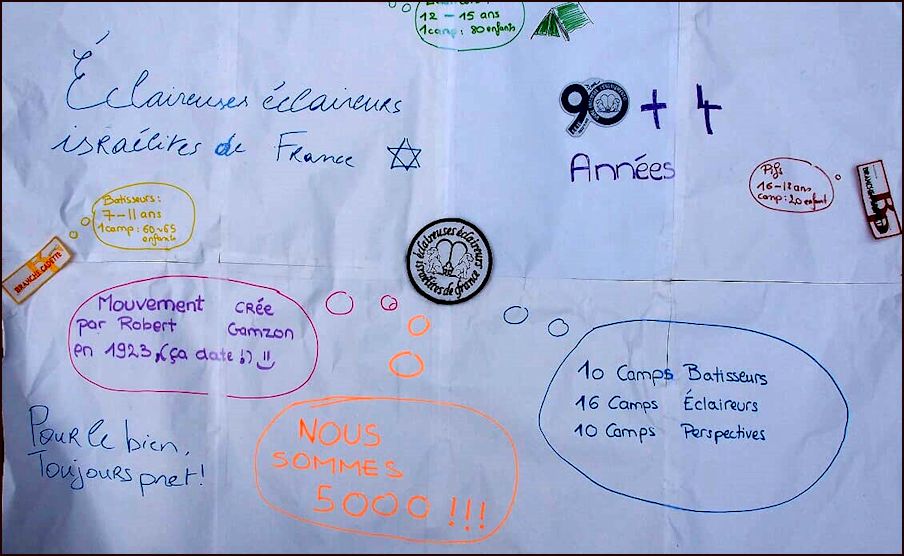 12 - 15 ans
1 camp : 80 enfants
Éclaireuses éclaireurs
israélites de France
90 + 4
Années
Pifs
16-18 ans
camp: 20 enfant
Batisseurs:
7-11 ans
1 camp: 60~65
enfants
BRANCHE CADETTE
éclaireuses éclaireurs
israélites de france
Mouvement crée
par Robert Gamzon
en 1923, (ça date !)
10 Camps Batisseurs
16 Camps Éclaireurs
10 Camps Perspectives
Pour le bien,
Toujours pret!
NOUS
SOMMES
5000 !!!